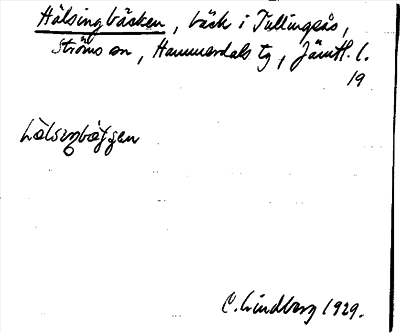 Hälsingbäcken, bäck i Tullingsås,
Ströms sn, Hammerdals tg, Jämtl. l.
19
C. Lindberg 1929.